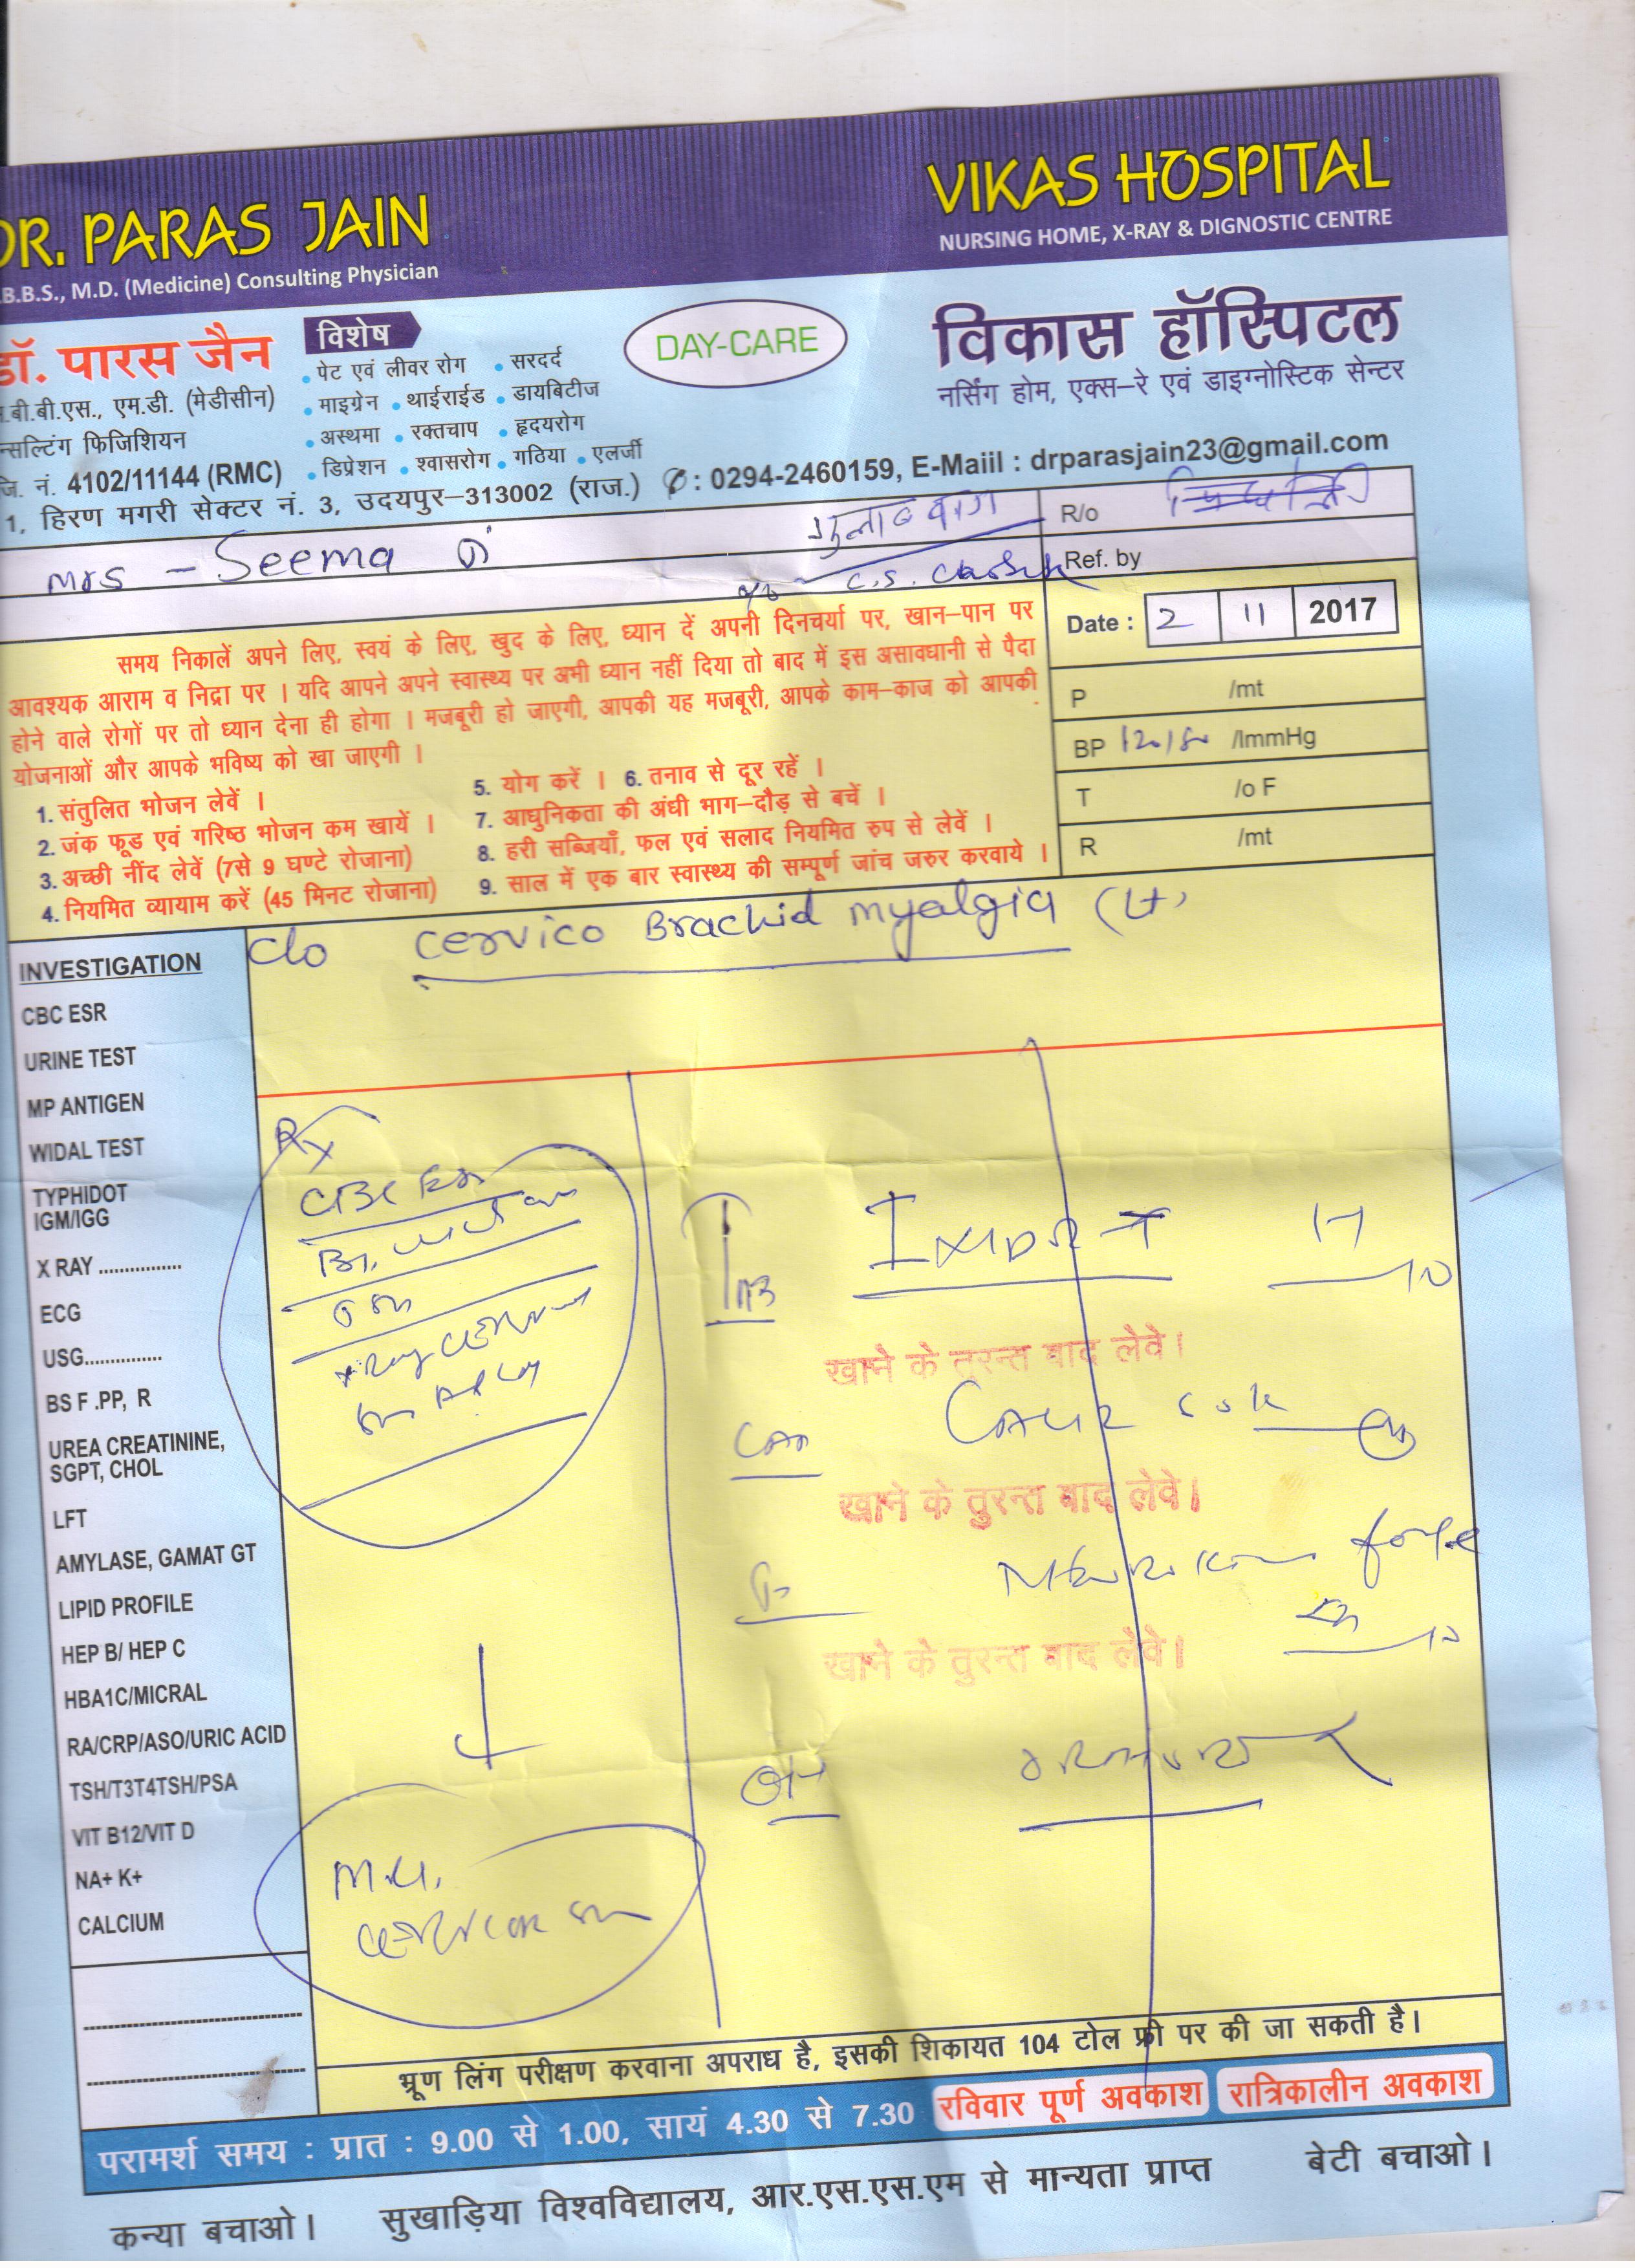 DR. PARAS JAIN
.B.B.S., M.D. (Medicine) Consulting Physician
VIKAS HOSPITAL
NURSING HOME, X-RAY & DIGNOSTIC CENTRE
डॉ. पारस जैन
.बी.बी.एस., एम.डी. (मेडीसीन)
न्सल्टिंग फिजिशियन
जि. नं. 4102/11144 (RMC)
विशेष
• पेट एवं लीवर रोग • सरदर्द
• माइग्रेन • थाईराईड • डायबिटीज
• अस्थमा • रक्तचाप • हृदयरोग
• डिप्रेशन • श्वासरोग • गठिया • एलर्जी
DAY-CARE
विकास हॉस्पिटल
नर्सिंग होम, एक्स-रे एवं डाइग्नोस्टिक सेन्टर
1, हिरण मगरी सेक्टर नं. 3, उदयपुर-313002 (राज.) : 0294-2460159, E-Maiil : drparasjain23@gmail.com
Mrs - Seema
गुलाब बाग
R/o
C.S.
Ref. by
Date : 2 11 2017
P /mt
BP 120/80 /ImmHg
T /o F
R /mt
समय निकालें अपने लिए, स्वयं के लिए, खुद के लिए, ध्यान दें अपनी दिनचर्या पर, खान-पान पर
आवश्यक आराम व निद्रा पर । यदि आपने अपने स्वास्थ्य पर अभी ध्यान नहीं दिया तो बाद में इस असावधानी से पैदा
होने वाले रोगों पर तो ध्यान देना ही होगा । मजबूरी हो जाएगी, आपकी यह मजबूरी, आपके काम-काज को आपकी
योजनाओं और आपके भविष्य को खा जाएगी ।
1. संतुलित भोजन लेवें ।
2. जंक फूड एवं गरिष्ठ भोजन कम खायें ।
3. अच्छी नींद लेवें (7से 9 घण्टे रोजाना)
4. नियमित व्यायाम करें (45 मिनट रोजाना)
5. योग करें । 6. तनाव से दूर रहें ।
7. आधुनिकता की अंधी भाग-दौड़ से बचें ।
8. हरी सब्जियाँ, फल एवं सलाद नियमित रुप से लेवें ।
9. साल में एक बार स्वास्थ्य की सम्पूर्ण जांच जरुर करवाये ।
C/o Cervico Brachial Myalgia (Lt)
INVESTIGATION
CBC ESR
URINE TEST
MP ANTIGEN
WIDAL TEST
TYPHIDOT
IGM/IGG
X RAY ................
ECG
USG..............
BS F .PP, R
UREA CREATININE,
SGPT, CHOL
LFT
AMYLASE, GAMAT GT
LIPID PROFILE
HEP B/ HEP C
HBA1C/MICRAL
RA/CRP/ASO/URIC ACID
TSH/T3T4TSH/PSA
VIT B12/VIT D
NA+ K+
CALCIUM
Rx
CBC
X-Ray
खाने के तुरन्त बाद लेवे।
खाने के तुरन्त बाद लेवे।
forte
खाने के तुरन्त बाद लेवे।
भ्रूण लिंग परीक्षण करवाना अपराध है, इसकी शिकायत 104 टोल फ्री पर की जा सकती है।
परामर्श समय : प्रात : 9.00 से 1.00, सायं 4.30 से 7.30 रविवार पूर्ण अवकाश रात्रिकालीन अवकाश
कन्या बचाओ। सुखाड़िया विश्वविद्यालय, आर.एस.एस.एम से मान्यता प्राप्त बेटी बचाओ।